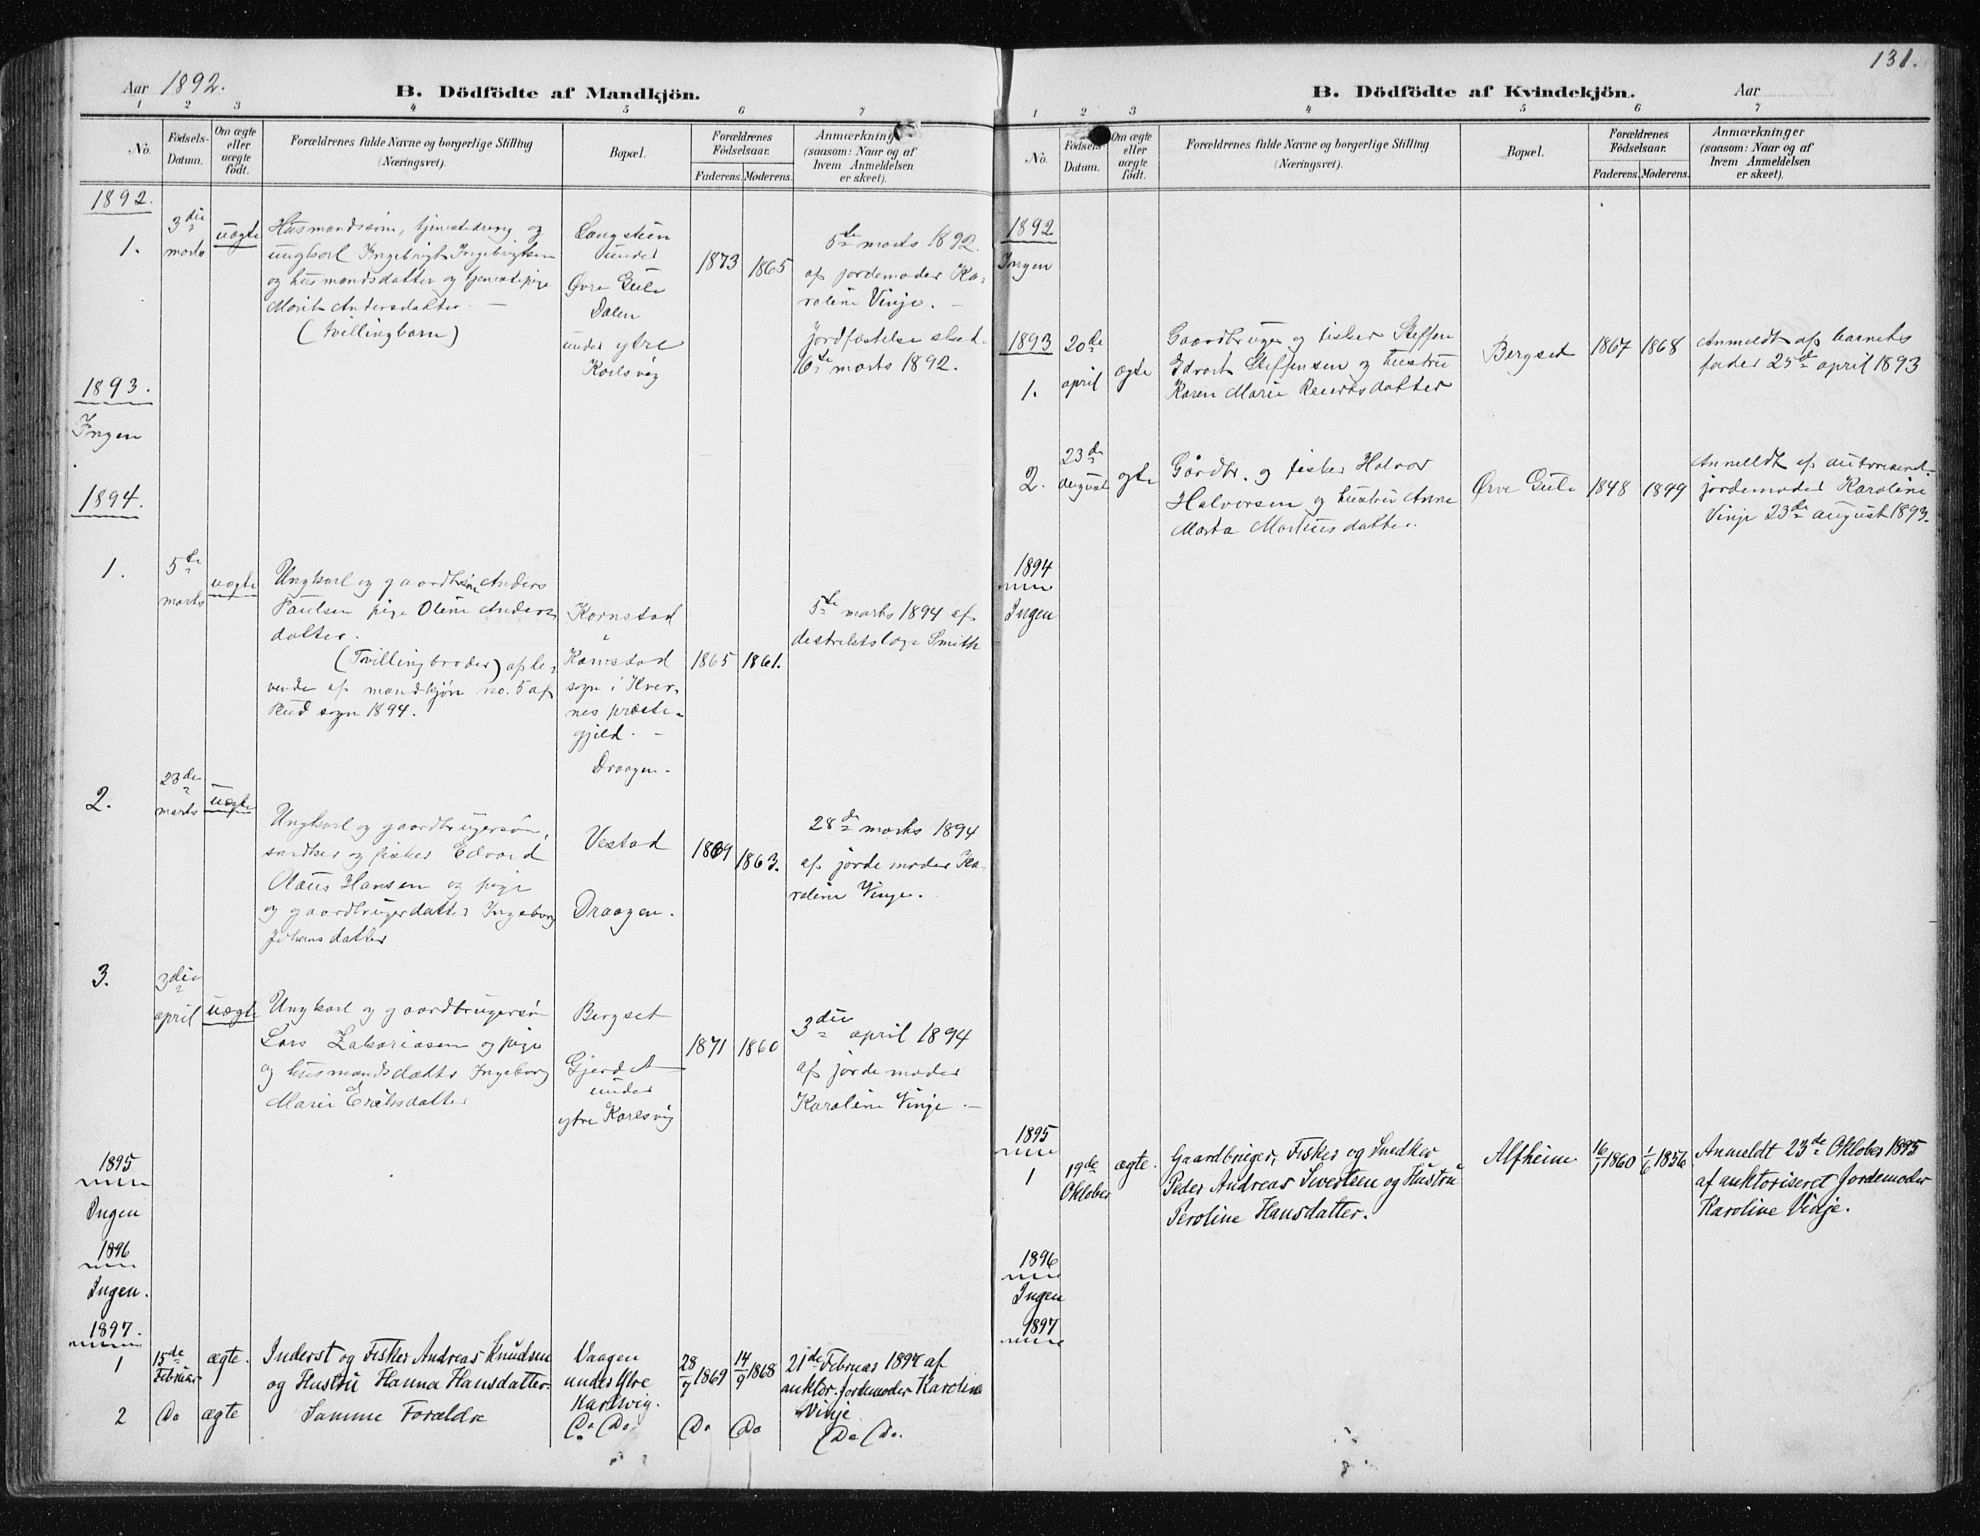 Aar 1892.
B. Dödfödte af Mandkjön.
1 2 3 4 5 6 7
No.
Födsels-
Datum.
Om ægte
eller
uægte
födt.
Forældrenes fulde Navne og borgerlige Stilling
(Næringsvei).
Bopæl.
Forældrenes
Födselsaar.
Faderens. Moderens.
Anmærkninger
(saasom: Naar og af
hvem Anmeldelsen
er skeet).
1892.
1.
3die
marts
uægte
Husmandssön, tjenestedreng og
ungkarl Ingebrigt Ingebrigtsen
og husmandsdatter og tjenestepige
Marit Andersdatter. —
(tvillingbarn)
Langsteen
under
Øvre Gule
Dalen
under ytre
Karlsvig
1873
1865
5te marts 1892.
af jordemoder Ka-
roline Vinje. —
Jordfæstelse skeet
16de marts 1892.
1893.
Ingen
1894.
1.
5te
marts
uægte
Ungkarl og gaardbrugersön Anders
Paulsen pige Oline Anders
datter.
(Tvillingbroder) af le-
vende af mandkjön no. 5 af
Bud sogn 1894.
Kornstad
i
Kornstad
sogn i Kver-
nes præste-
gjeld. —
Draagen.
1865
1861.
5te marts 1894 af
destriktslæge Smith
2.
23de
marts
uægte
Ungkarl og gaardbrugersön,
snedker og fisker Edvard
Olaus Hansen og pige
og gaardbrugerdatter Ingeborg
Johansdatter
Vestad
Draagen.
1869
1863.
28de marts 1894
af jordemoder Ka-
roline Vinje.
3.
3die
april
uægte
Ungkarl og gaardbrugersön
Lars Zakariasen og pige
og husmandsdatter Ingeborg
Marie Eriksdatter
Bergset
Gjerdet
under
ytre Karlsvig
1871
1860
3die april 1894
af jordemoder
Karoline Vinje —
1895
Ingen
1896
Ingen.
1897.
1
15de
Februar
ægte.
Inderst og Fisker Andreas Knudsen
og Hustru Hanna Hansdatter.
Vaagen
under Ytre
Karlsvig.
28/7 1869
14/9 1868
21de Februar 1897 af
auktor. Jordemoder Karoline
Vinje
2
Do
ægte
Samme Forældre
Do Do
Do
Do
Do Do.
131.
B. Dödfödte af Kvindekjön.
Aar
1 2 3 4 5 6 7
No.
Födsels-
Datum.
Om ægte
eller
uægte
födt.
Forældrenes fulde Navne og borgerlige Stilling
(Næringsvei).
Bopæl.
Forældrenes
Födselsaar.
Faderens. Moderens.
Anmærkninger
(saasom: Naar og af
hvem Anmeldelsen
er skeet).
1892
Ingen
1893
1.
20de
april
ægte
Gaardbruger og fisker Steffen
Edvart Steffensen og hustru
Karen Marie Reiertsdatter
Bergset
1867
1868
Anmeldt af barnets
fader 25de april 1893
2.
23de
august
ægte
Gårdbr. og fisker Halvor
Halvorsen og hustru Anne
Marta Markusdatter.
Øvre Gule
1848
1849
Anmeldt af autoriseret
jordemoder Karoline
Vinje 23de august 1893.
1894
Ingen
1895
1
19de
Oktober
ægte.
Gaardbruger, Fisker og Snedker
Peder Andreas Sivertsen og Hustru
Peroline Hansdatter.
Alfheim
16/1 1860
1/6 1856
Anmeldt 23de Oktober 1895
af auktoriseret Jordemoder
Karoline Vinje.
1896
Ingen
1897